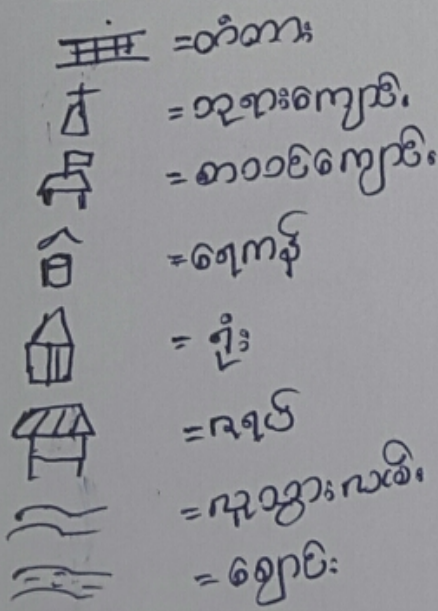 =တံတား
=ဘုရားကျောင်း
=စာသင်ကျောင်း
=ရေကန်
=ရုံး
=ဇရပ်
=လူသွားလမ်း
=ချောင်း